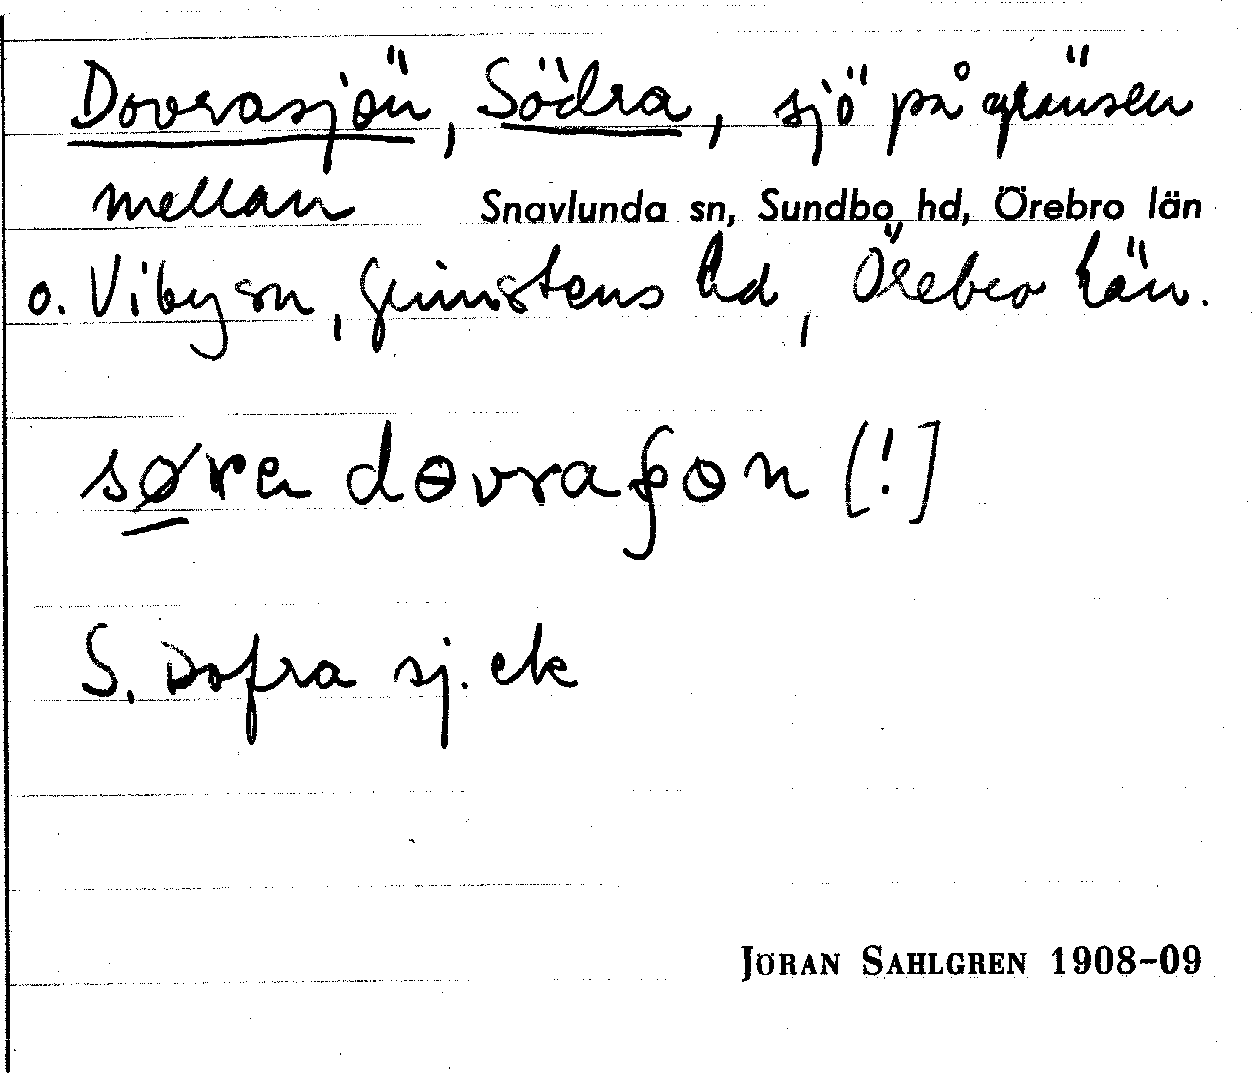 Dovrasjön, Södra, sjö på gränsen
mellan Snavlunda sn, Sundbo hd, Örebro län
o. Viby sn, Grimstens hd, Örebro län.
søra dovraʃɵn [!]
S. Dofra sj. ek
JÖRAN SAHLGREN 1908-09